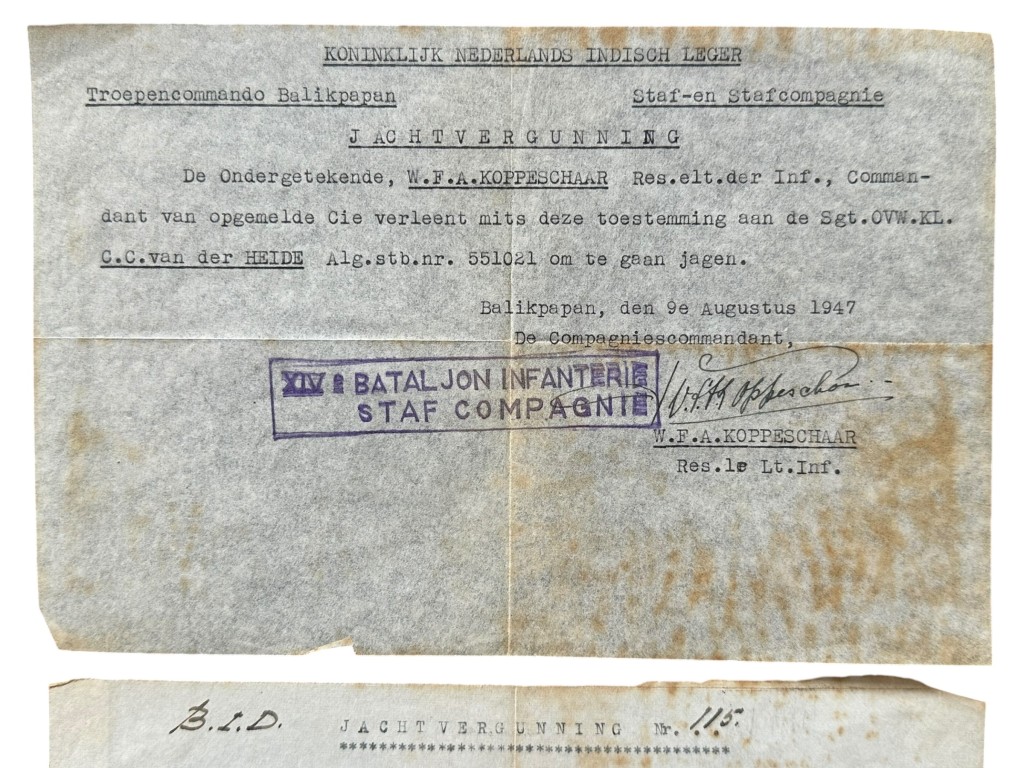 KONINKLIJK NEDERLANDS INDISCH LEGER
Troepencommando Balikpapan Staf-en Stafcompagnie
JACHTVERGUNNING
De Ondergetekende, W.F.A.KOPPESCHAAR Res.elt.der Inf., Comman-
dant van opgemelde Cie verleent mits deze toestemming aan de Sgt.OVW.KL.
C.C.van der HEIDE Alg.stb.nr. 551021 om te gaan jagen.
Balikpapan, den 9e Augustus 1947
De Compagniescommandant,
XIVe BATALJON INFANTERIE
STAF COMPAGNIE
W.F.A.KOPPESCHAAR
Res.1e Lt.Inf.
B.I.D. JACHTVERGUNNING Nr. 115.
************************************